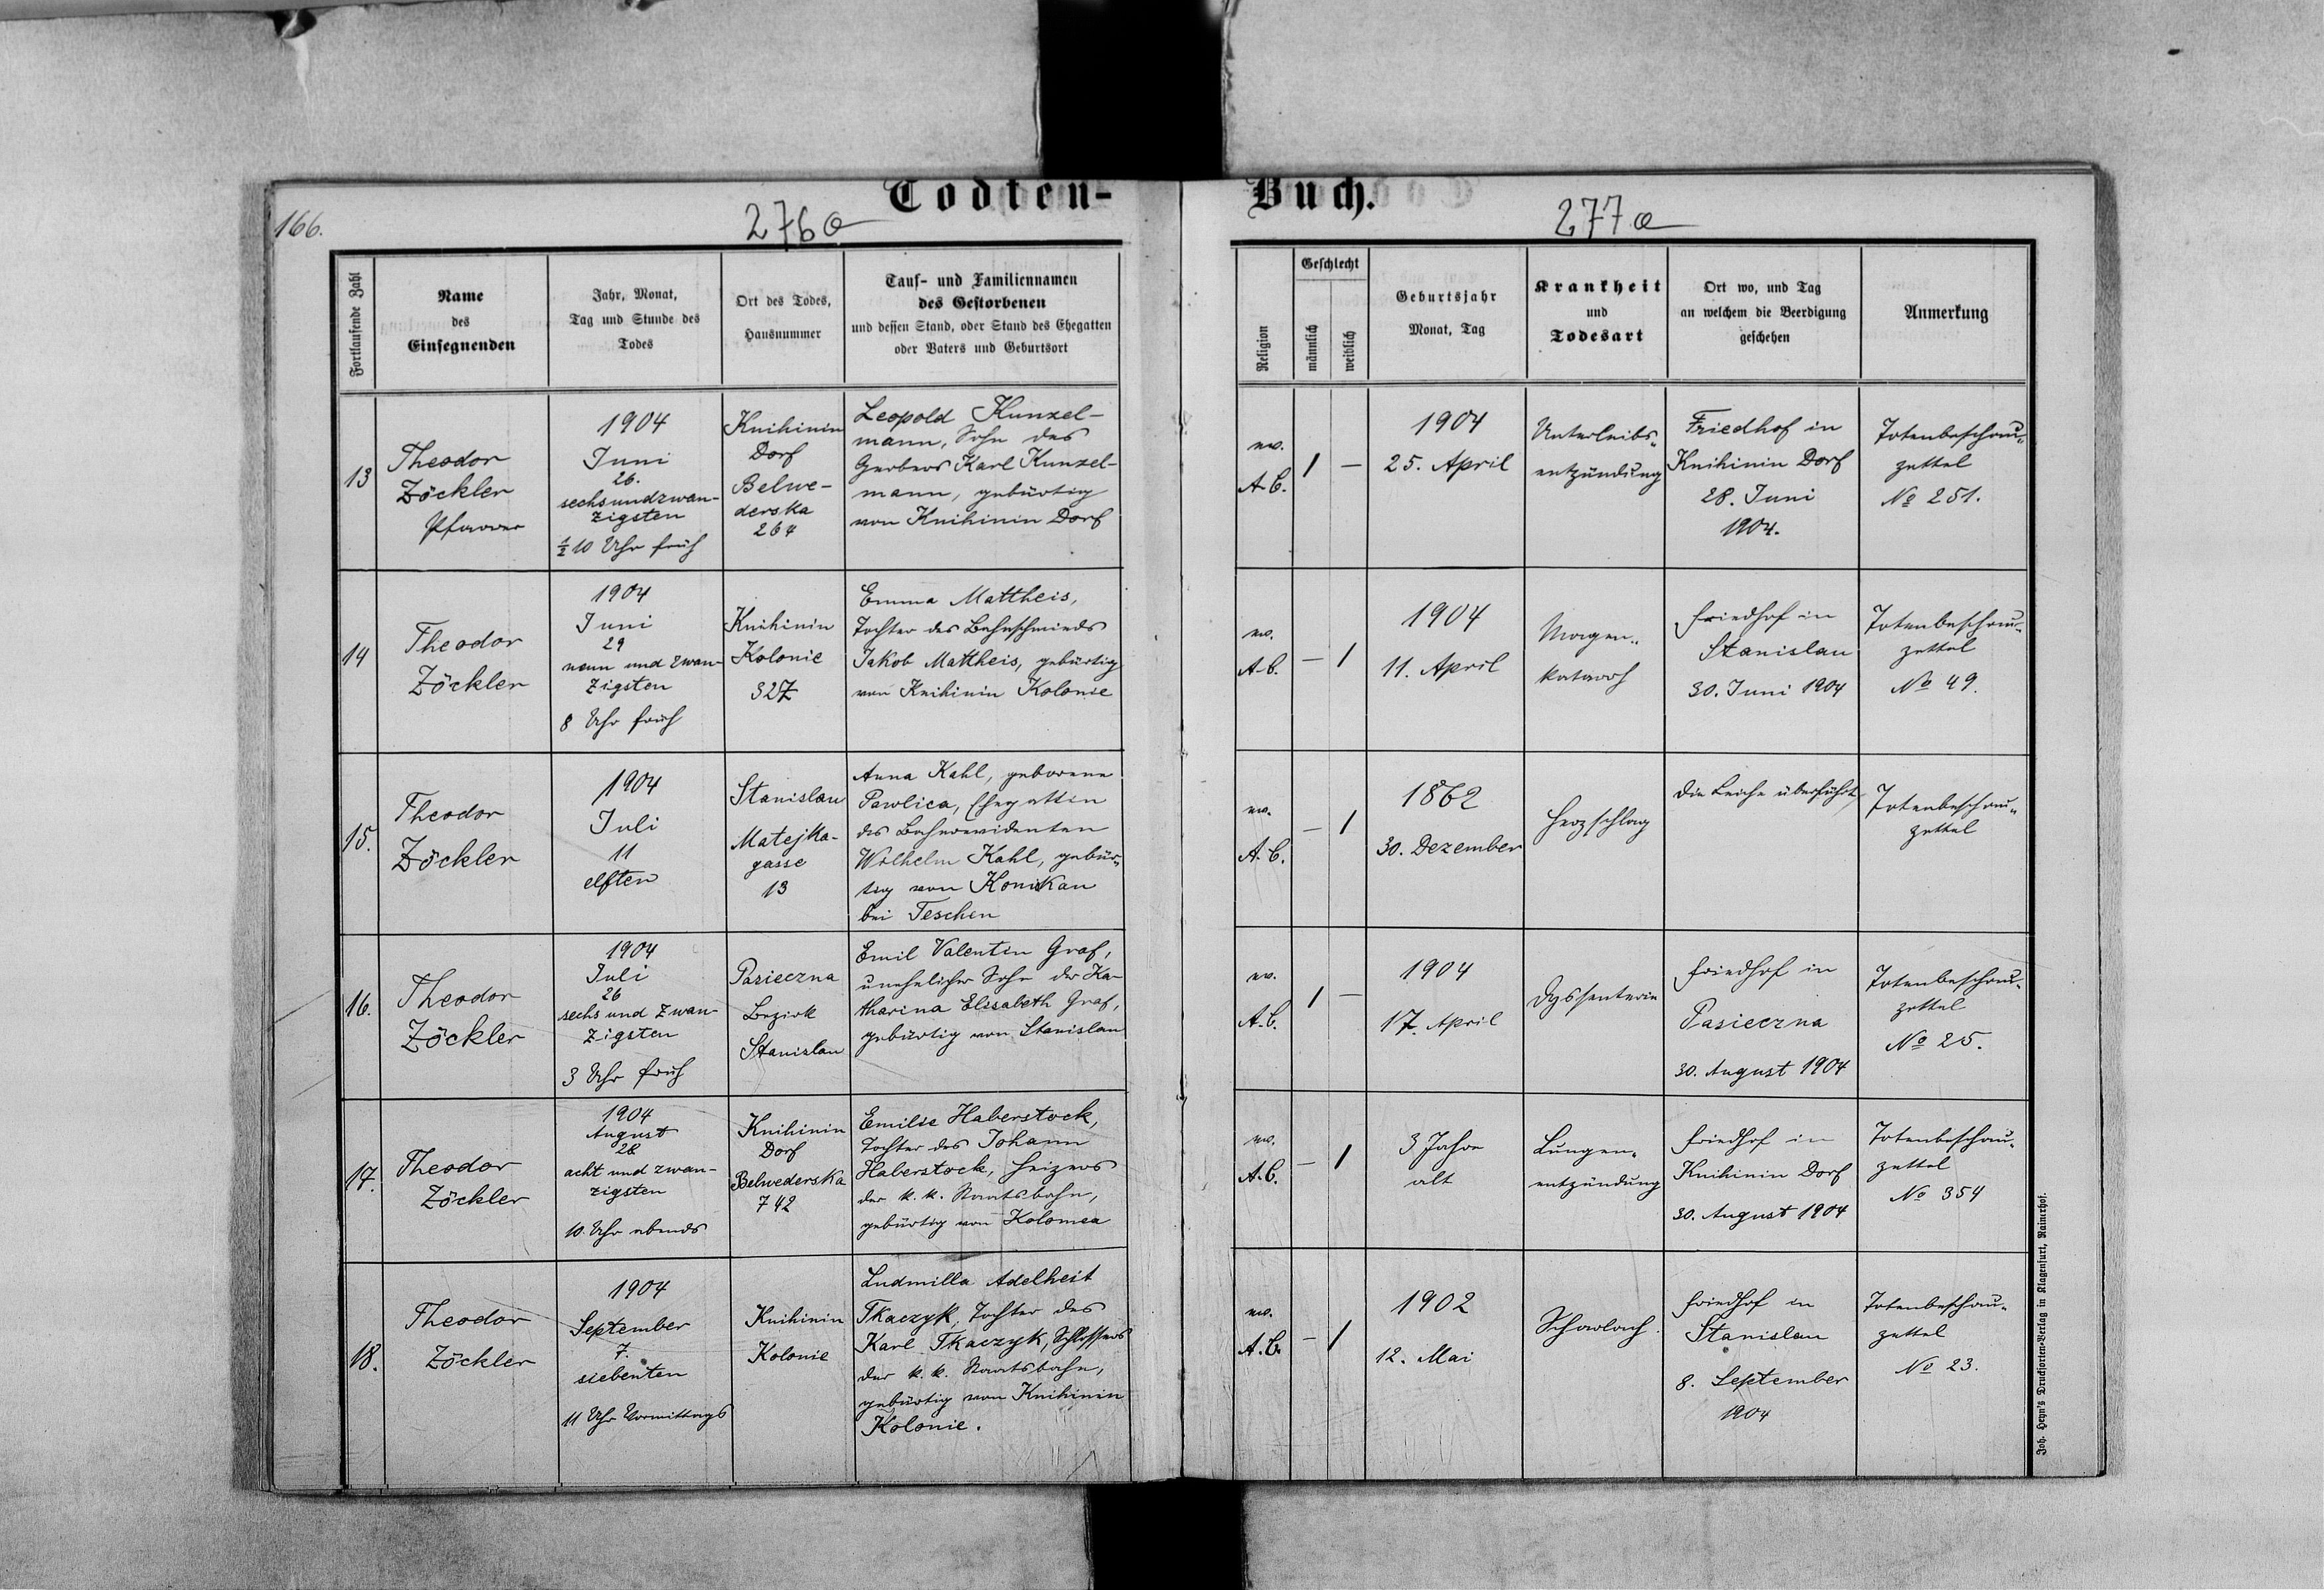 Todten-
Buch.
166.
276a
277a
Fortlaufende Zahl
Name
des
Einsegnenden
Jahr, Monat,
Tag und Stunde des
Todes
Ort des Todes,
Hausnummer
Tauf- und Familiennamen
des Gestorbenen
und dessen Stand, oder Stand des Ehegatten
oder Vaters und Geburtsort
Religion
Geschlecht
männlich
weiblich
Geburtsjahr
Monat, Tag
Krankheit
und
Todesart
Ort wo, und Tag
an welchem die Beerdigung
geschehen
Anmerkung
13
Theodor
Zöckler
Pfarrer
1904
Juni
26.
sechsundzwan-
zigsten
½10 Uhr früh
Knihinin
Dorf
Belwe-
derska
264
Leopold Kunzel-
mann, Sohn des
Gerbers Karl Kunzel-
mann, gebürtig
von Knihinin Dorf
ev.
A.B.
1
—
1904
25. April
Unterleibs-
entzündung
Friedhof in
Knihinin Dorf
28. Juni
1904.
Totenbeschau-
zettel
No 251.
14
Theodor
Zöckler
1904
Juni
29
neun und zwan-
zigsten
8 Uhr früh
Knihinin
Kolonie
327
Emma Mattheis,
Tochter des Bahnschmieds
Jakob Mattheis, gebürtig
von Knihinin Kolonie
ev.
A.B.
—
1
1904
11. April
Magen-
katarrh
Friedhof in
Stanislau
30. Juni 1904
Totenbeschau-
zettel
No 49.
15.
Theodor
Zöckler
1904
Juli
11
elften
Stanislau
Matejka-
gasse
13
Anna Kahl, geborene
Pawlica, Ehegattin
des Bahnrevidenten
Wilhelm Kahl, gebür-
tig von Konskau
bei Teschen
ev.
A.B.
—
1
1862
30. Dezember
Herzschlag
Die Leiche überführt
Totenbeschau-
zettel
16.
Theodor
Zöckler
1904
Juli
26
sechs und zwan-
zigsten
3 Uhr früh
Pasieczna
Bezirk
Stanislau
Emil Valentin Graf,
unehelicher Sohn der Ka-
tharina Elisabeth Graf,
gebürtig von Stanislau
ev.
A.B.
1
—
1904
17. April
Dyssenterie
Friedhof in
Pasieczna
30. August 1904
Totenbeschau-
zettel
No 25.
17.
Theodor
Zöckler
1904
August
28
acht und zwan-
zigsten
10. Uhr abends
Knihinin
Dorf
Belwederska
742
Emilie Haberstock,
Tochter des Johann
Haberstock, Heizers
der k. k. Staatsbahn,
gebürtig von Kolomea
ev.
A.B.
—
1
3 Jahre
alt
Lungen-
entzündung
Friedhof in
Knihinin Dorf
30. August 1904
Totenbeschau-
zettel
No 354
18.
Theodor
Zöckler
1904
September
7.
siebenten
11 Uhr Vormittags
Knihinin
Kolonie
Ludmilla Adelheit
Tkaczyk, Tochter des
Karl Tkaczyk, Schlossers
der k. k. Staatsbahn,
gebürtig von Knihinin
Kolonie.
ev.
A.B.
—
1
1902
12. Mai
Scharlach.
Friedhof in
Stanislau
8. September
1904
Totenbeschau-
zettel
No 23.
Joh. Heyn's Drucksorten-Verlag in Klagenfurt, Rainerhof.